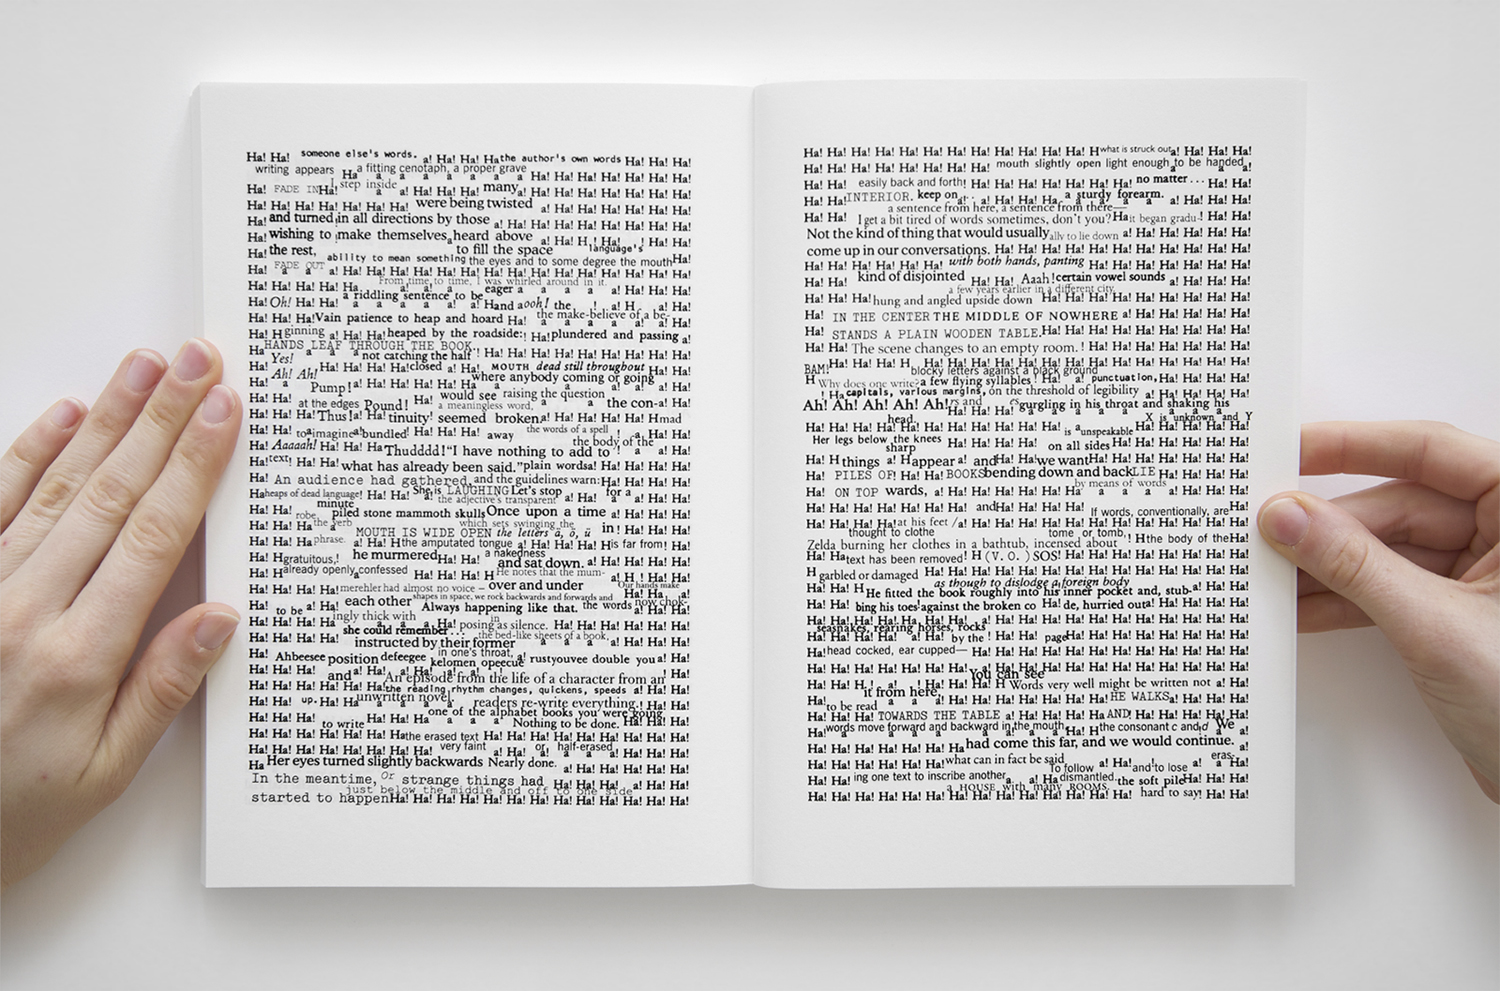 Ha! Ha! someone else's words. a! Ha! Ha! Ha the author's own words Ha! Ha! Ha!
writing appears Ha a fitting cenotaph, a proper grave
Ha! FADE IN Ha! I step inside a! Ha! Ha! Ha! many Ha! Ha! Ha! Ha! Ha! Ha!
Ha! Ha! Ha! Ha! Ha! Ha! were being twisted a! Ha! Ha! Ha! Ha! Ha!
Ha! and turned in all directions by those a! Ha! Ha! Ha! Ha! Ha! Ha! Ha!
Ha! wishing to make themselves heard above a! Ha! H
Ha! the rest, to fill the space language's
ability to mean something the eyes and to some degree the mouth Ha!
Ha! FADE OUT a! Ha! Ha! Ha! Ha! Ha! Ha! Ha! Ha! Ha! Ha! Ha! Ha! Ha! Ha!
From time to time, I was whirled around in it.
Ha! Ha! Ha! Ha! Ha. a riddling sentence to be eager a
Ha! Oh! Ha! Ha! and aooh! the
Ha! Ha! Ha! Vain patience to heap and hoard Ha! the make-believe of a be-
Ha! H ginning a! Ha! Ha! heaped by the roadside: Ha! plundered and passing a!
HANDS LEAF THROUGH THE BOOK.
Ha! Yes! not catching the half
Ha! Ah! Ah! closed a! Ha! MOUTH dead still throughout
where anybody coming or going
Pump! would see raising the question
at the edges Pound! a meaningless word, the con-
Thus! tinuity! seemed broken. mad
to imagine bundled! away the words of a spell
Ha! Aaaaah! Ha! Ha! Ha! Thudddd! "I have nothing to add to the body of the
Ha! text! Ha! Ha! what has already been said." plain words
Ha! An audience had gathered, and the guidelines warn: Ha!
Ha heaps of dead language! Ha! Ha! She is LAUGHING Let's stop for a
the adjective's transparent
robe, minute piled stone mammoth skulls Once upon a time a! Ha! Ha! Ha!
Ha! Ha! the verb MOUTH IS WIDE OPEN which sets swinging the letters ä, ö, ü in!
Ha! Ha phrase. the amputated tongue is far from!
Ha! H gratuitous,! he murmured a nakedness and sat down.
Ha! H already openly confessed Ha! Ha! Ha! H He notes that the mum-
Ha! merehler had almost no voice – over and under Our hands make
each other shapes in space, we rock backwards and forwards and
Ha! to be a! Ha! Always happening like that. the words now chok-
ingly thick with posing as silence. Ha! Ha! Ha! Ha! Ha!
she could remember... the bed-like sheets of a book,
instructed by their former
in one's throat,
Ha! Ahbeesee position defeegee kelomen opeecue rustyouvee double you a! Ha!
Ha! Ha! Ha! and An episode from the life of a character from an
the reading rhythm changes, quickens, speeds a! Ha! Ha!
Ha! Ha! up. unwritten novel, readers re-write everything.
one of the alphabet books you were going
to write Nothing to be done.
Ha! Ha! Ha! Ha! Ha! Ha! the erased text Ha! Ha! Ha! Ha! Ha! Ha! Ha! Ha!
very faint or half-erased
Ha Her eyes turned slightly backwards Nearly done. a! Ha! Ha! Ha! Ha!
In the meantime, Or strange things had Ha! Ha! Ha! Ha! Ha!
just below the middle and off to one side
started to happen Ha! Ha! Ha! Ha! Ha! Ha! Ha! Ha! Ha! Ha! Ha!
Ha! Ha! Ha! Ha! Ha! Ha! Ha! Ha! Ha! Ha! Ha! Ha! H what is struck out a! Ha! Ha! Ha!
Ha! Ha! Ha! Ha! Ha! Ha! Ha! Ha! mouth slightly open light enough to be handed
Ha! Ha! easily back and forth! Ha! Ha! Ha! Ha! Ha! Ha! Ha! no matter... Ha! Ha!
Ha! Ha! INTERIOR. keep on a sturdy forearm.
a sentence from here, a sentence from there—
Ha! Ha! I get a bit tired of words sometimes, don't you? Ha it began gradu ! Ha! Ha!
Not the kind of thing that would usually ally to lie down a! Ha! Ha! Ha! Ha!
come up in our conversations. Ha! Ha! Ha! Ha! Ha! Ha! Ha! Ha! Ha! Ha!
with both hands, panting
kind of disjointed Ha! Ha! Aaah! certain vowel sounds
a few years earlier in a different city,
Ha! Ha! Ha! hung and angled upside down Ha! Ha! Ha! Ha! Ha! Ha! Ha! Ha!
Ha! IN THE CENTER THE MIDDLE OF NOWHERE a! Ha! Ha! Ha! Ha!
Ha! STANDS A PLAIN WOODEN TABLE. Ha! Ha! Ha! Ha! Ha! Ha! Ha!
Ha! Ha! The scene changes to an empty room. ! Ha! Ha! Ha! Ha! Ha! Ha!
BAM! blocky letters against a black ground
H Why does one write? a few flying syllables! Ha! Ha! punctuation, Ha! Ha! Ha!
! Ha capitals, various margins, on the threshold of legibility a! Ha! Ha! Ha!
Ah! Ah! Ah! Ah! Ah! gurgling in his throat and shaking his
head. X is unknown and Y
is unspeakable
Her legs below the knees on all sides Ha! Ha! Ha! Ha! Ha!
sharp
Ha! H things a! H appear a! and we want Ha! Ha! Ha! Ha! Ha! Ha!
Ha! PILES OF! Ha! BOOKS bending down and back LIE Ha! Ha! Ha! Ha!
Ha! ON TOP wards, a! Ha! Ha! Ha! Ha! Ha! by means of words
Ha! Ha! Ha! Ha! Ha! Ha! and Ha! Ha! Ha! If words, conventionally, are
Ha! Ha! Ha! Ha! at his feet
thought to clothe tome or tomb,
Zelda burning her clothes in a bathtub, incensed about ! H the body of the Ha!
Ha! Ha text has been removed! H (V. O.) SOS! Ha! Ha! Ha! Ha! Ha! Ha! Ha!
H garbled or damaged Ha! Ha! Ha! Ha! Ha! Ha! Ha! Ha! Ha! Ha! Ha! Ha!
as though to dislodge a foreign body
Ha! Ha! H He fitted the book roughly into his inner pocket and, stub-
Ha! Ha! bing his toes against the broken co de, hurried out a! Ha! Ha! Ha!
seasnakes, rearing horses, rocks
by the ! Ha! Ha! page Ha! Ha! Ha! Ha! Ha! Ha!
Ha! head cocked, ear cupped— Ha! Ha! Ha! Ha! Ha! Ha! Ha! Ha! Ha! Ha!
You can see
it from here Words very well might be written not a! Ha!
to be read HE WALKS
Ha! Ha! Ha! TOWARDS THE TABLE a! Ha! Ha! Ha! AND
words move forward and backward in the mouth the consonant c and d We
Ha! Ha! Ha! Ha! Ha! Ha! Ha! had come this far, and we would continue. a!
Ha! Ha! Ha! Ha! Ha! Ha! what can in fact be said eras-
To follow and to lose
Ha! Ha! ing one text to inscribe another dismantled. the soft pile Ha! Ha!
a HOUSE with many ROOMS.
Ha! Ha! Ha! Ha! Ha! Ha! Ha! Ha! Ha! Ha! Ha! Ha! Ha! Ha! hard to say! Ha! Ha!